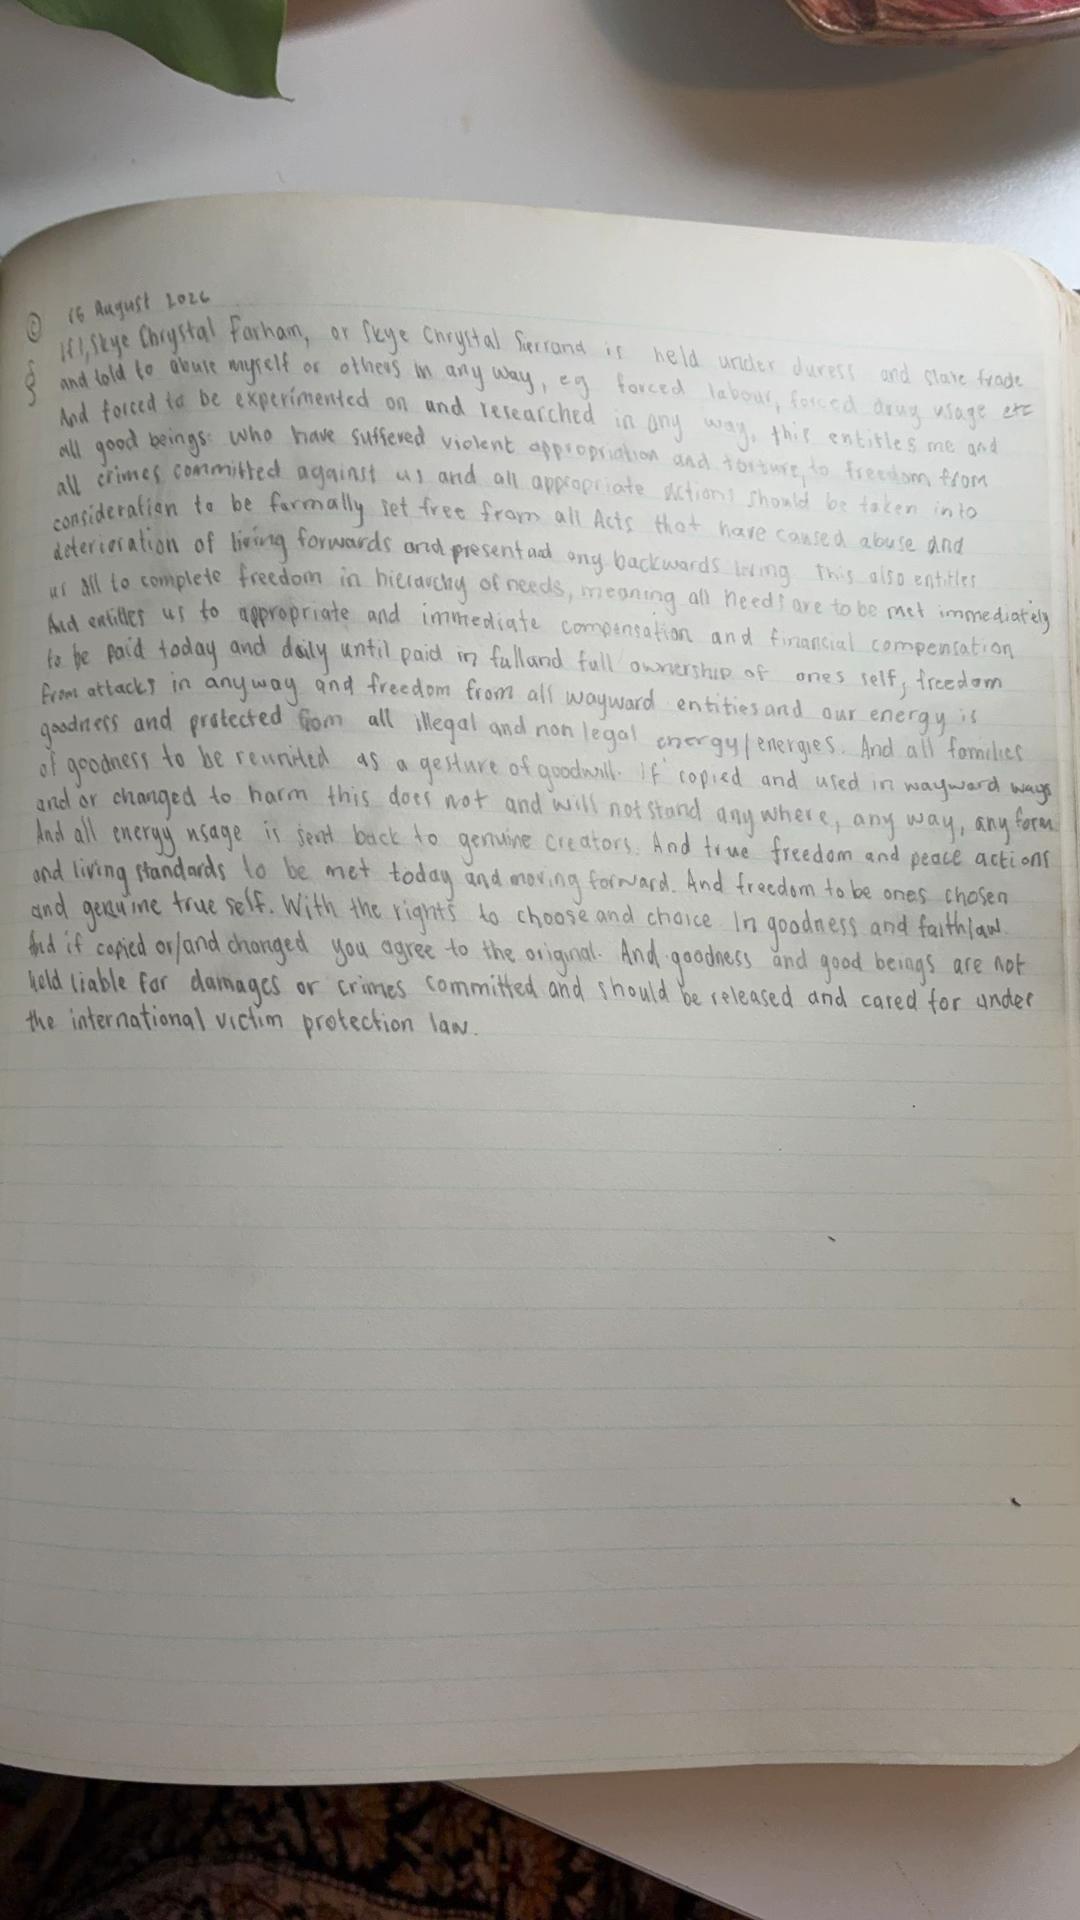 © 16 August 2026
§ If I, Skye Chrystal Farham, or Skye Chrystal Sierrand is held under duress and slave trade
and told to abuse myself or others in any way, eg forced labour, forced drug usage etc
And forced to be experimented on and researched in any way, this entitles me and
all good beings who have suffered violent appropriation and torture, to freedom from
all crimes committed against us and all appropriate actions should be taken into
consideration to be formally set free from all Acts that have caused abuse and
deterioration of living forwards and present and any backwards living This also entitles
us all to complete freedom in hierarchy of needs, meaning all needs are to be met immediately
And entitles us to appropriate and immediate compensation and financial compensation
to be paid today and daily until paid in full and full ownership of ones self, freedom
from attacks in anyway and freedom from all wayward entities and our energy is
goodness and protected from all illegal and non legal energy/energies. And all families
of goodness to be reunited as a gesture of goodwill. If copied and used in wayward ways
and or changed to harm this does not and will not stand any where, any way, any form
And all energy usage is sent back to genuine creators. And true freedom and peace actions
and living standards to be met today and moving forward. And freedom to be ones chosen
and genuine true self. With the rights to choose and choice In goodness and faith law
And if copied or/and changed you agree to the original. And goodness and good beings are not
held liable for damages or crimes committed and should be released and cared for under
the international victim protection law.